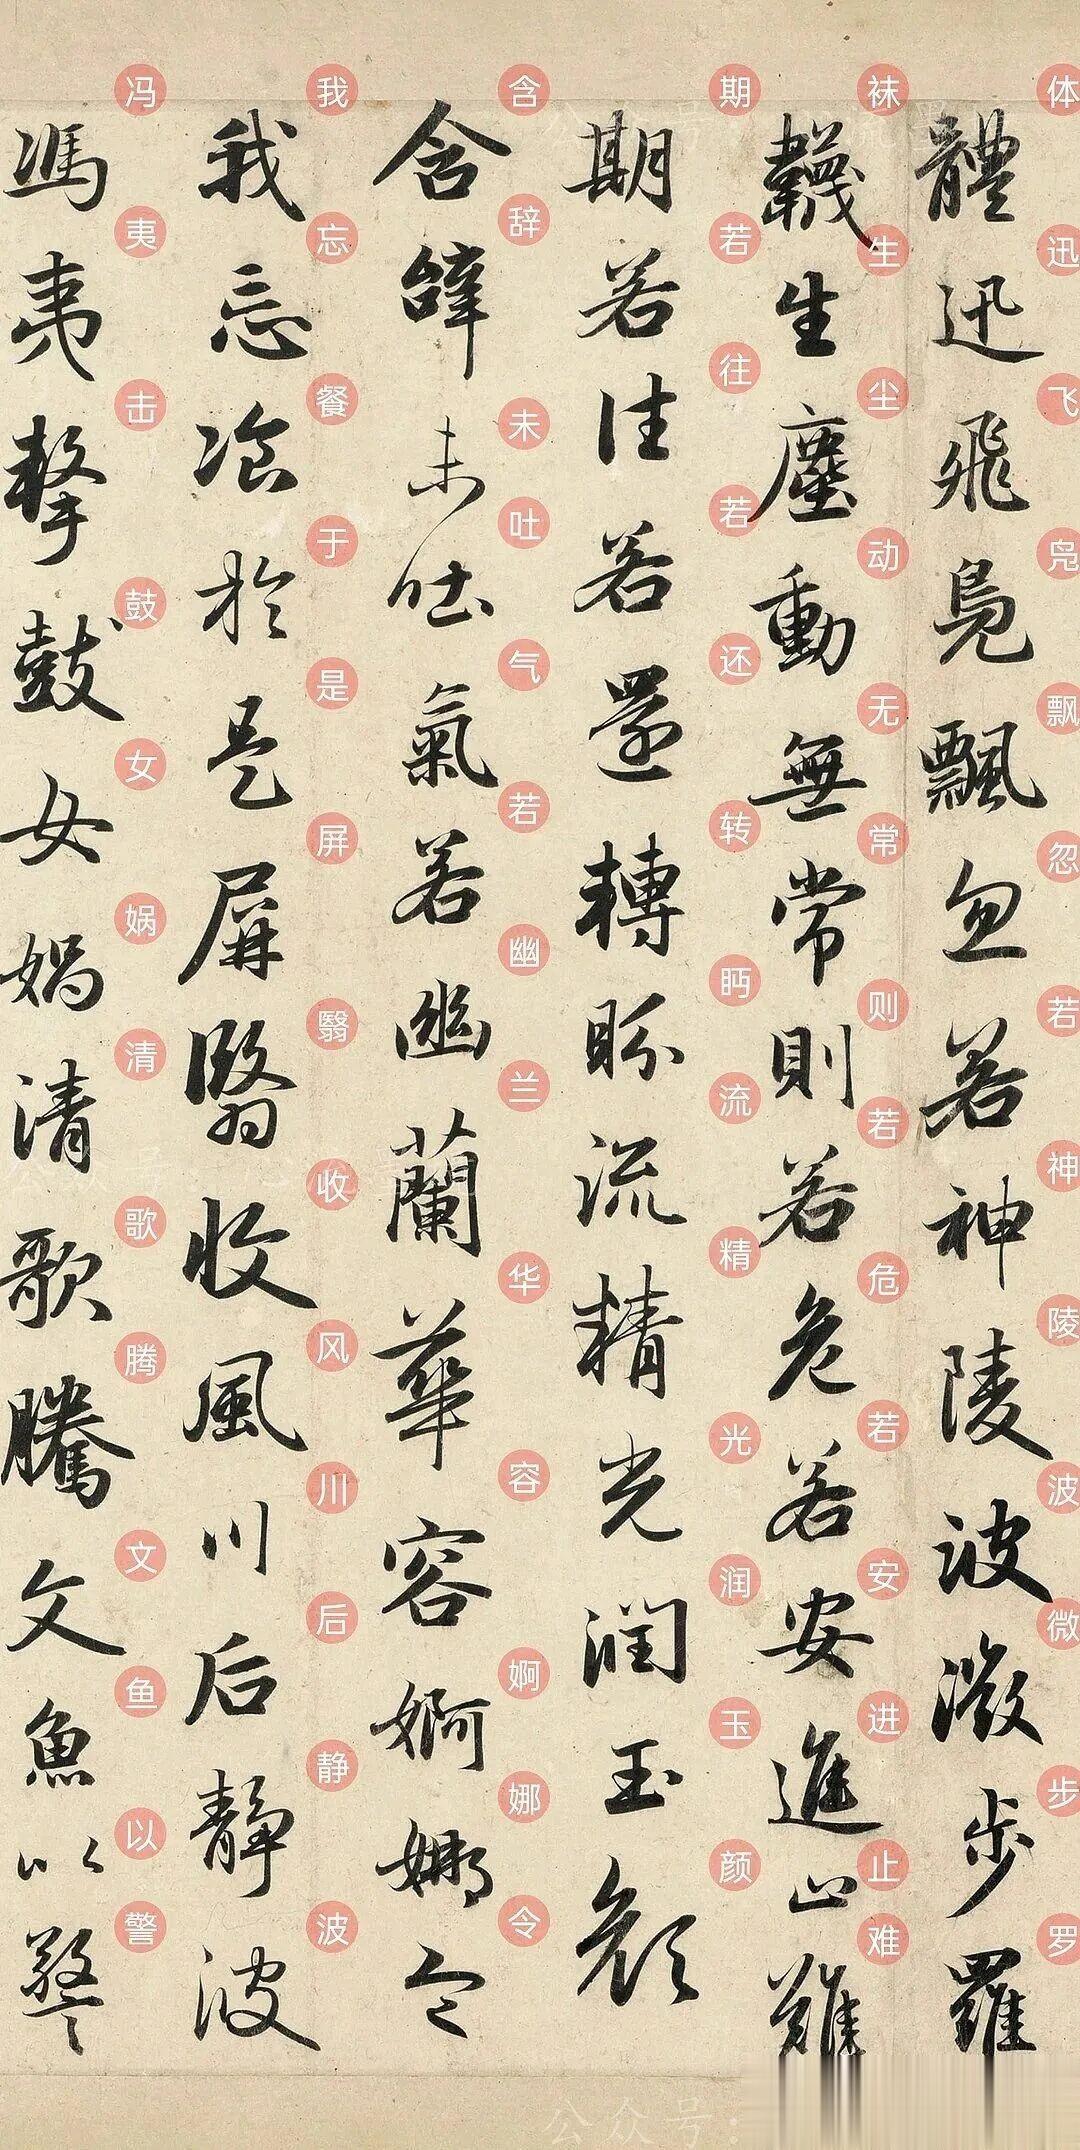 體迅飛鳧飄忽若神陵波微步羅
体迅飞凫飘忽若神陵波微步罗
韈生塵動無常則若危若安進止難
袜生尘动无常则若危若安进止难
期若往若還轉眄流精光潤玉顏
期若往若还转眄流精光润玉颜
含辭未吐氣若幽蘭華容婀娜令
含辞未吐气若幽兰华容婀娜令
我忘飡於是屏翳收風川后静波
我忘餐于是屏翳收风川后静波
馮夷擊鼓女媧清歌騰文魚以警
冯夷击鼓女娲清歌腾文鱼以警
公众号: